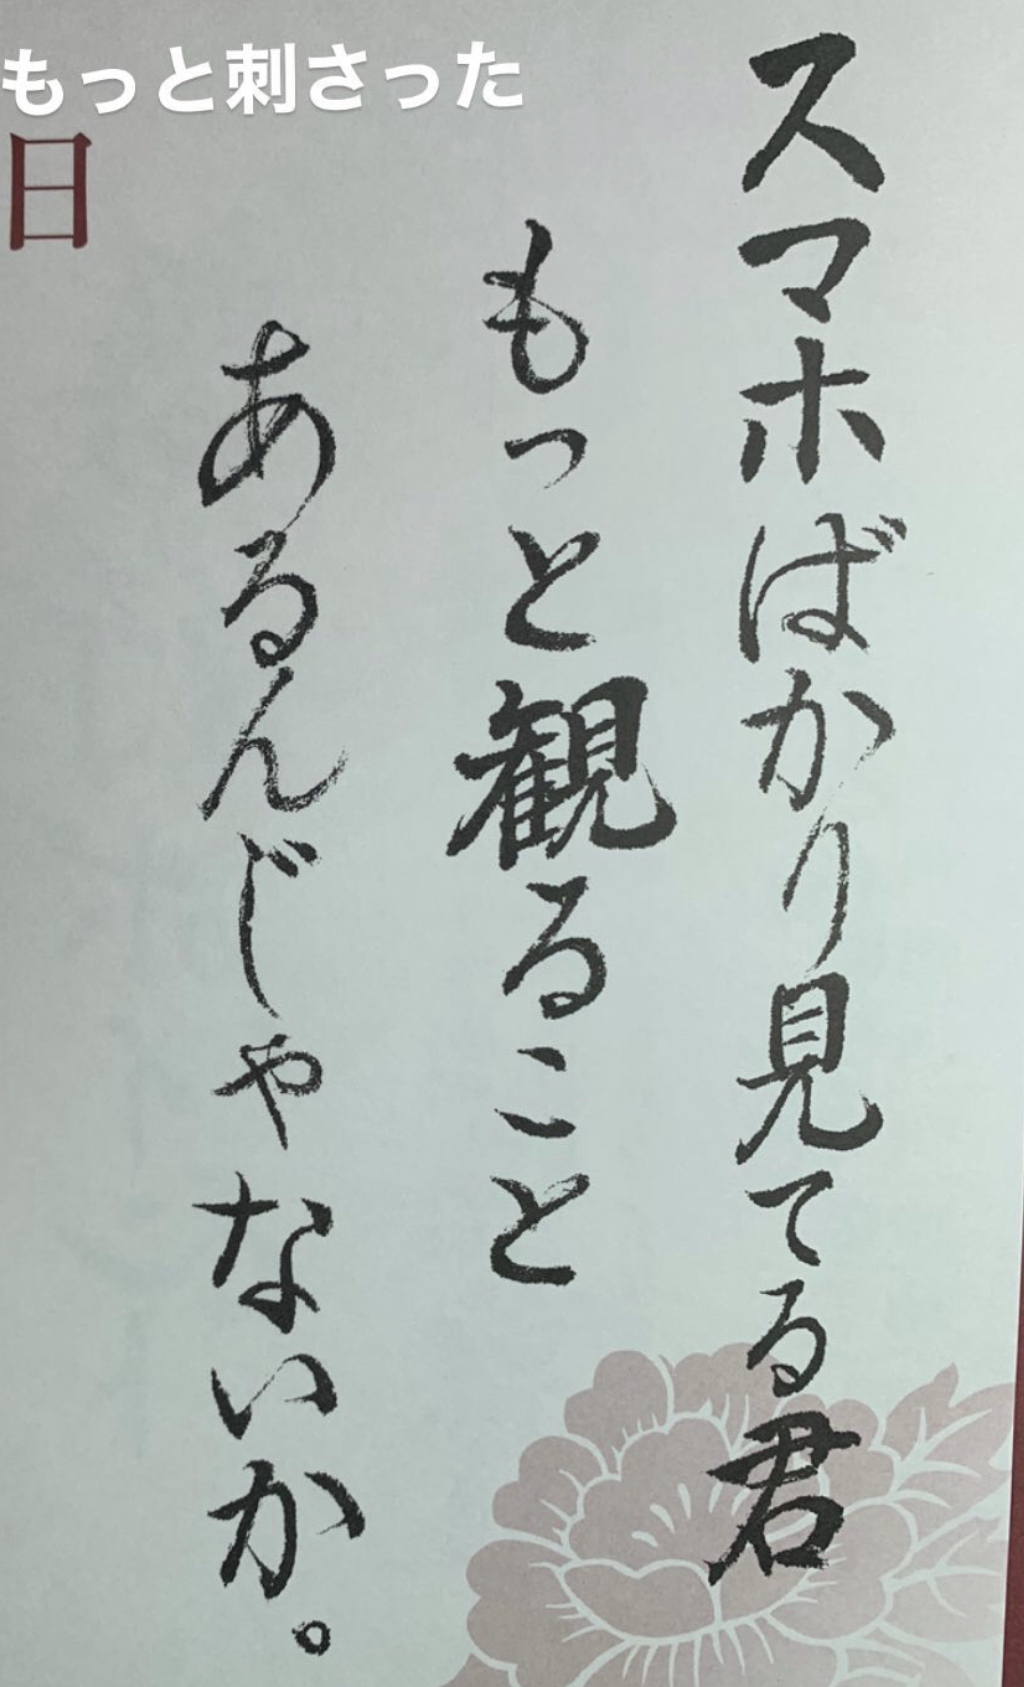 もっと刺さった
日
スマホばかり見てる君
もっと観ること
あるんじゃないか。